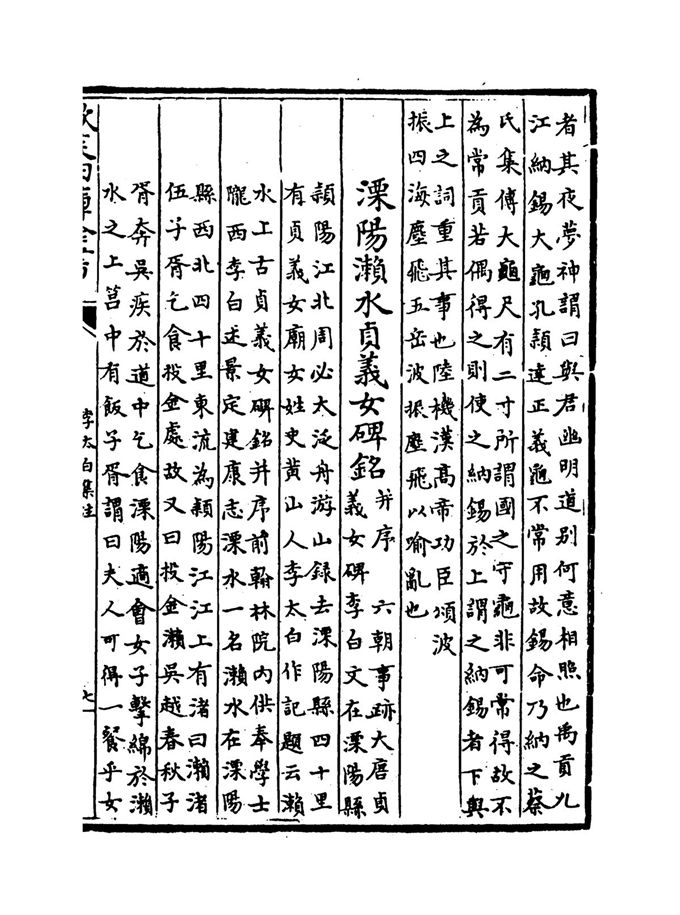 者其夜夢神謂曰與君幽明道別何意相照也禹貢九
江納錫大龜孔穎達正義龜不常用故錫命乃納之蔡
氏集傳大龜尺有二寸所謂國之守龜非可常得故不
為常貢若偶得之則使之納錫於上謂之納錫者下與
上之詞重其事也陸機漢高帝功臣頌波
振四海塵飛五岳波振塵飛以喻亂也
溧陽瀨水貞義女碑銘并序
六朝事跡大唐貞
義女碑李白文在溧陽縣
頴陽江北周必太泛舟游山録去溧陽縣四十里
有貞義女廟女姓史黄山人李太白作記題云瀨
水上古貞義女碑銘并序前翰林院内供奉學士
隴西李白述景定建康志溧水一名瀨水在溧陽
縣西北四十里東流為頴陽江江上有渚曰瀨渚
伍子胥乞食投金處故又曰投金瀨吳越春秋子
胥奔吳疾於道中乞食溧陽適會女子擊綿於瀨
水之上筥中有飯子胥謂曰夫人可得一餐乎女
欽定四庫全書
李太白集注
七